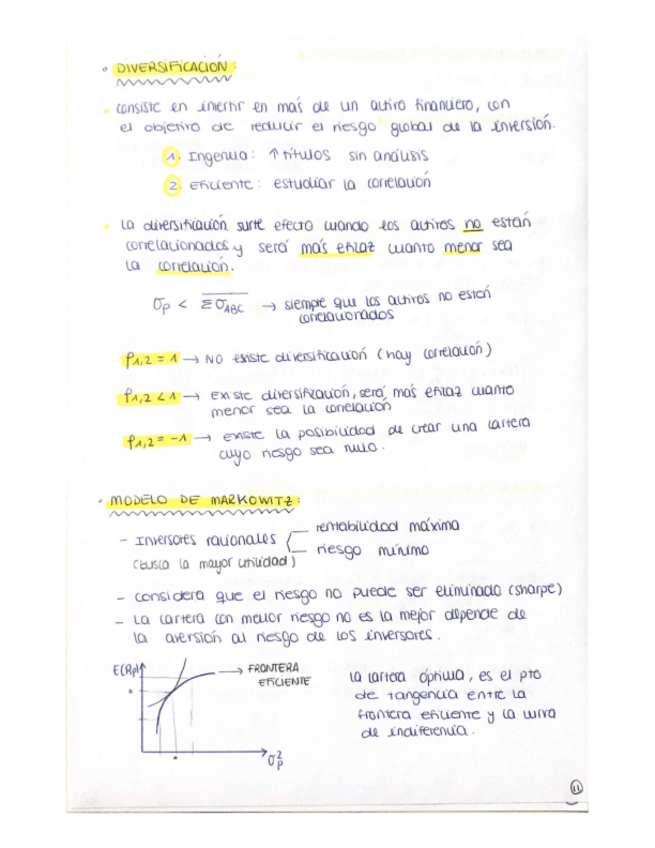 • DIVERSIFICACIÓN:
• consiste en invertir en más de un activo financiero, con
el objetivo de reducir el riesgo global de la inversión.
1. Ingenua: ↑ títulos sin análisis
2. Eficiente: estudiar la correlación
• La diversificación surte efecto cuando los activos no están
correlacionados y será más eficaz cuanto menor sea
la correlación.
σp < Σσ_ABC → siempre que los activos no estén
correlacionados
ρ1,2 = 1 → NO existe diversificación (hay correlación)
ρ1,2 < 1 → Existe diversificación, será más eficaz cuanto
menor sea la correlación
ρ1,2 = -1 → existe la posibilidad de crear una cartera
cuyo riesgo sea nulo.
• MODELO DE MARKOWITZ:
- Inversores racionales
rentabilidad máxima
riesgo mínimo
(busca la mayor utilidad)
- considera que el riesgo no puede ser eliminado (sharpe)
- La cartera con menor riesgo no es la mejor depende de
la aversión al riesgo de los inversores.
E(Rp)
→ FRONTERA
EFICIENTE
σ²p
la cartera óptima, es el pto
de tangencia entre la
frontera eficiente y la curva
de indiferencia.
11